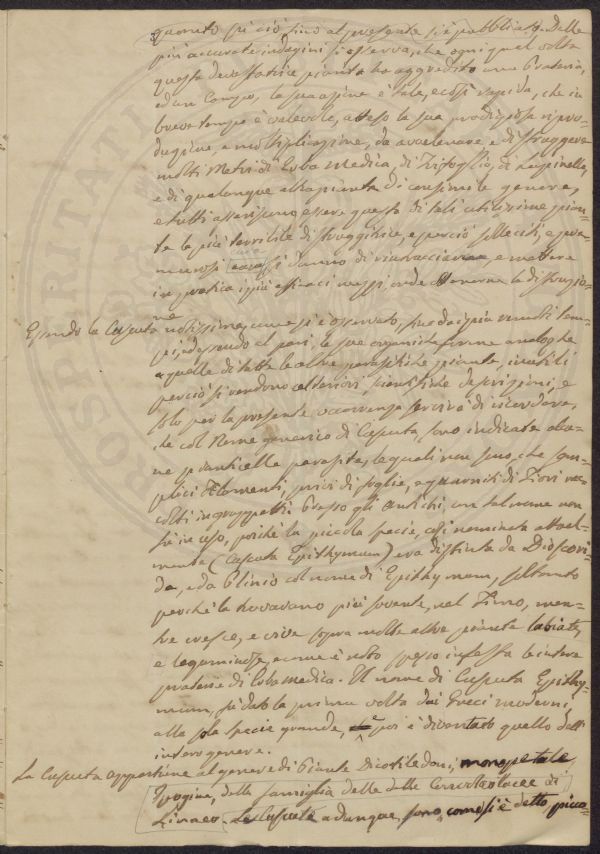 quanto su ciò sino al presente si è pubblicato. Dalle
più accurate indagini si osserva, che ogni qual volta
questa devastatrice pianta ha aggredito una Prateria,
od un Campo, la sua azione è tale, e così rapida, che in
breve tempo è valevole, atteso la sua prodigiosa ripro-
duzione e moltiplicazione, da avvelenare e distruggere
molti Metri di Erba Medica, di Trifoglio, di Lupinella,
e di qualunque altra pianta di consimile genere,
e tutti asseriscono essere questa di tali utilissime pian-
te la più terribile distruggitrice, e perciò solleciti, e pre-
murosi si danno di rintracciare, e mettere
in pratica i più efficaci mezzi, onde ottenerne la distruzio-
ne
Essendo la Cuscuta notissima, come si è osservato, fino dai più remoti tem-
pi, ed essendo al pari, la sua organizzazione analoga
a quelle di tutte le altre parassitiche piante, inutili
perciò si rendono ulteriori, scientifiche descrizioni, e
solo per la presente occorrenza servirà di ricordare,
che col Nome generico di Cuscuta, sono indicate alcu-
ne pianticelle parassite, le quali non sono, che sem-
plici filamenti, privi di foglie, e guarniti di Fiori rac-
colti in gruppetti. Presso gli Antichi, un tal nome non
era in uso, poichè la piccola specie, così nominata attual-
mente (Cuscuta Epithymum) era distinta da Dioscori-
de, e da Plinio col nome di Epithymum, soltanto
perchè la trovavano più sovente, nel Timo, men-
tre cresce, e vive sopra molte altre piante labiate,
e leguminose, e come è noto spesso infesta le intere
praterie di Erba medica. Il nome di Cuscuta Epithy-
mum, fù dato la prima volta dai Greci moderni,
alla sola specie grande, e poi è diventato quello dell'
intero genere.
La Cuscuta appartiene al genere di Piante Dicotiledoni, monopetale,
Ipogine, della famiglia delle Convolvolacee di
Linneo. Le Cuscute adunque, sono, come si è detto, picco-